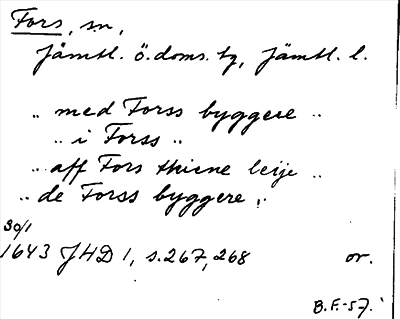 Fors, sn,
Jämtl. ö. doms. tg, Jämtl. l.
.. med Forss byggere ..
.. i Forss ..
.. aff Fors thiene leije ..
.. de Forss byggere ..
30/1
1643 JHD 1, s. 267, 268 or.
B.F.-57.